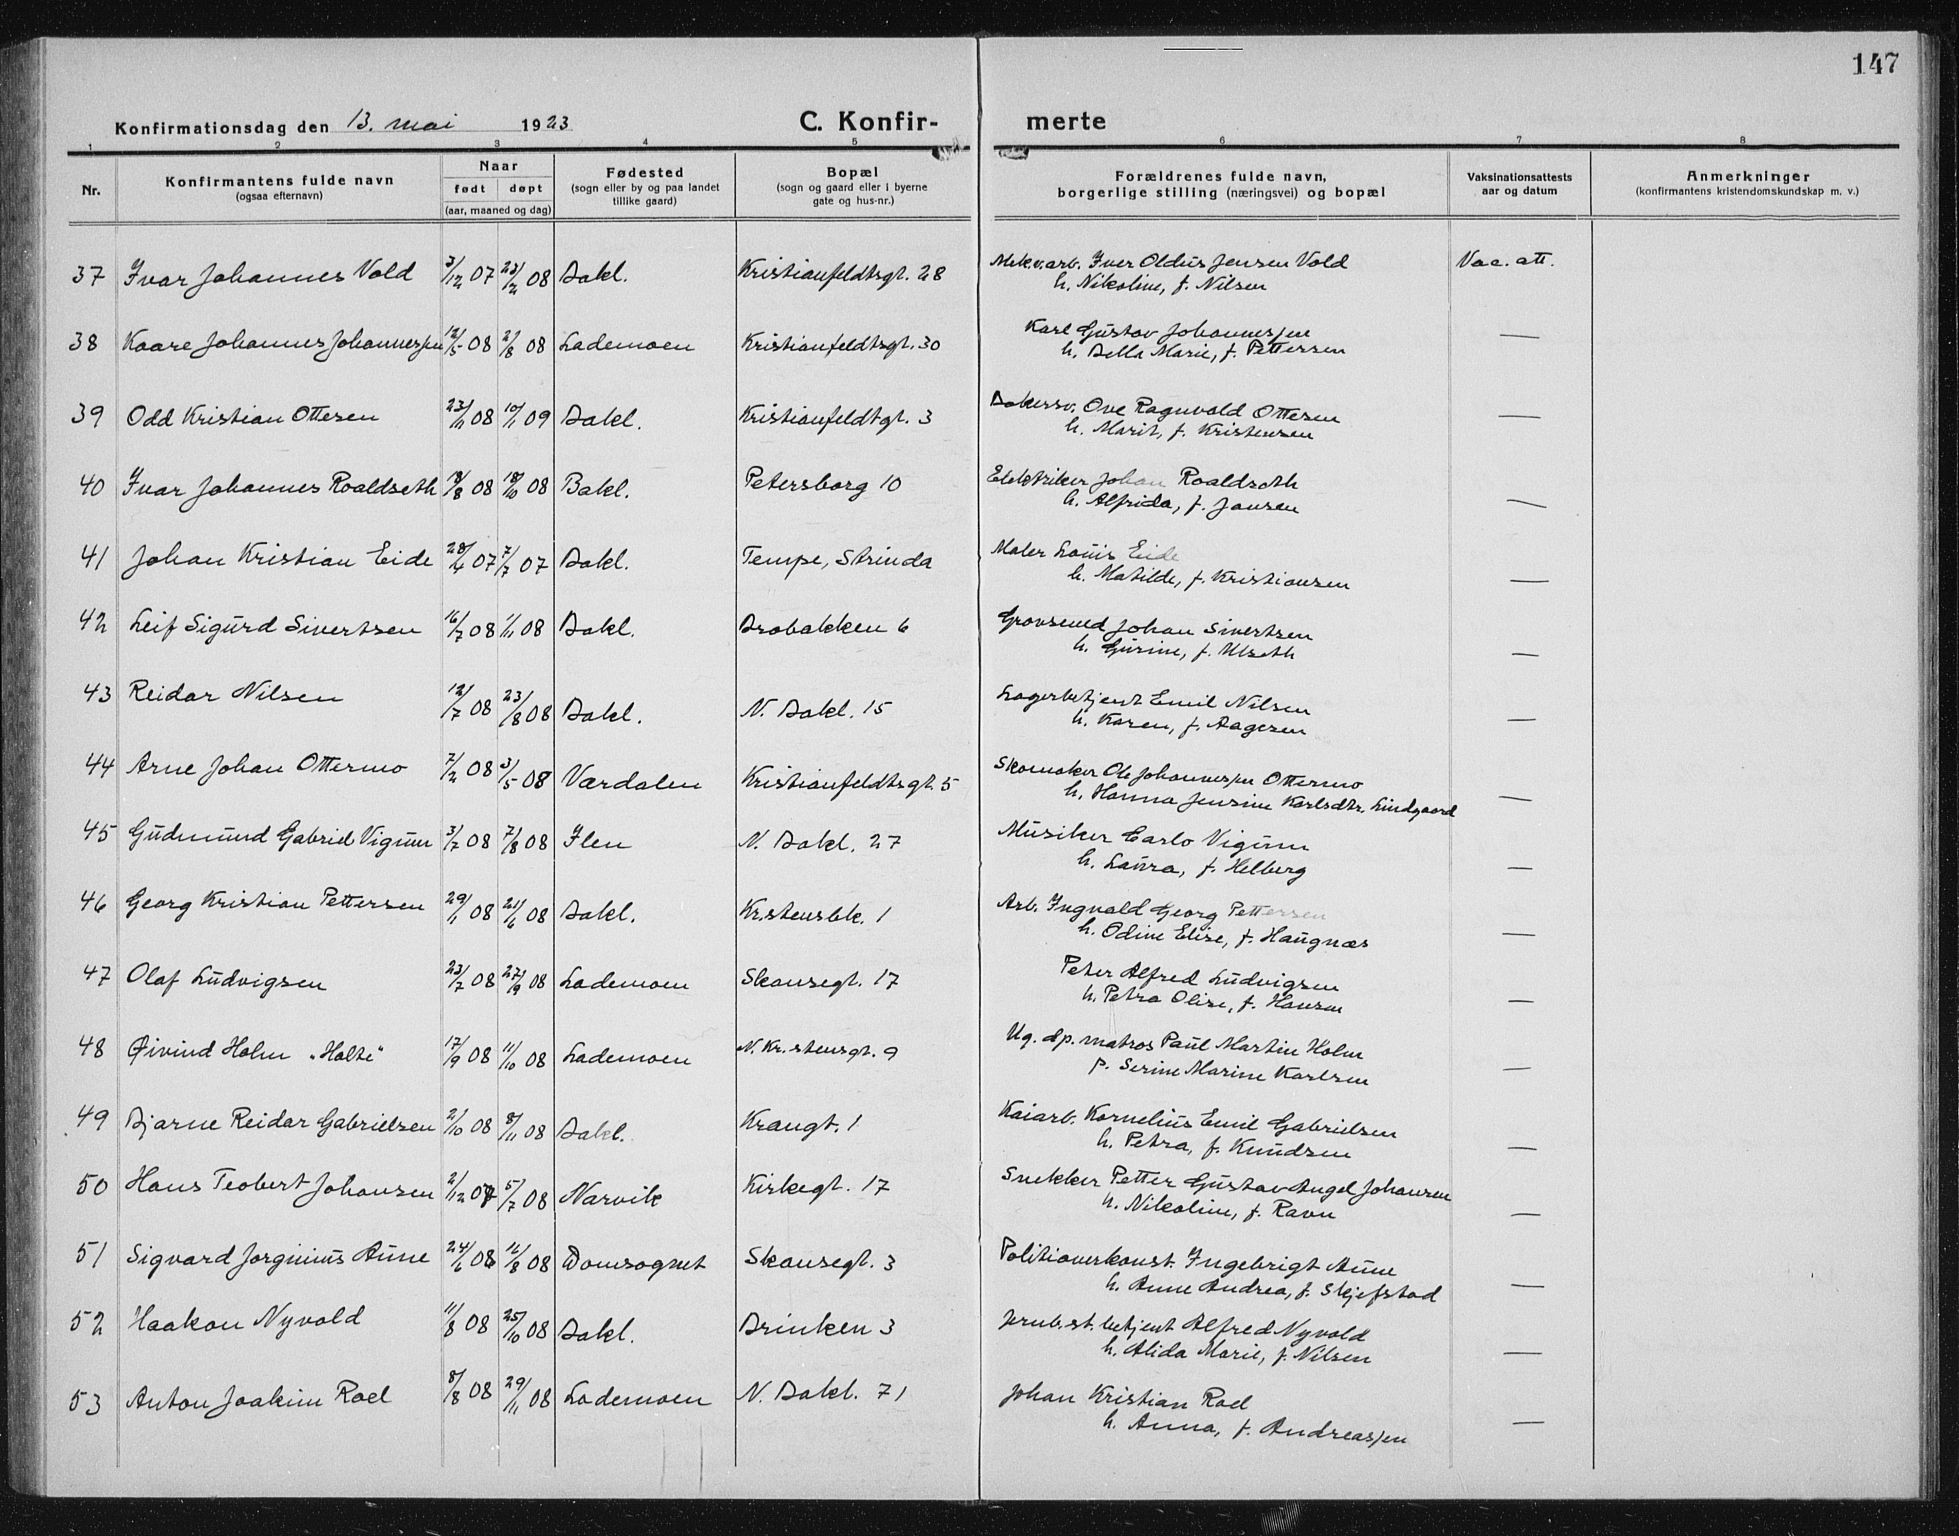 147
Konfirmationsdag den 13. mai 1923 C. Konfirmerte
1 2 3 4 5 6 7 8
Nr. Konfirmantens fulde navn (ogsaa efternavn) Naar født døpt (aar, maaned og dag) Fødested (sogn eller by og paa landet tillike gaard) Bopæl (sogn og gaard eller i byerne gate og hus-nr.) Forældrenes fulde navn, borgerlige stilling (næringsvei) og bopæl Vaksinationsattests aar og datum Anmerkninger (konfirmantens kristendomskundskap m. v.)
37 Ivar Johannes Vold 3/12 07 23/2 08 Bakl. Kristianfeldtsgt. 28 Mek.arb. Iver Oldus Jensen Vold Vac. att.
h. Nikoline, f. Nilsen
38 Kaare Johannes Johannessen 12/5 08 2/8 08 Lademoen Kristianfeldtsgt. 30 Karl Gustav Johannessen —
h. Della Marie, f. Pettersen
39 Odd Kristian Ottesen 23/11 08 10/1 09 Bakl. Kristianfeldtgt. 3 Bakersv. Ove Ragnvald Ottesen —
h. Marit, f. Kristensen
40 Ivar Johannes Roaldseth 18/8 08 18/10 08 Bakl. Petersborg 10 Elektriker Johan Roaldseth
h. Alfrida, f. Jansen —
41 Johan Kristian Eide 07 7/7 07 Bakl. Tempe, Strinda Maler Louis Eide
h. Matilde, f. Kristiansen —
42 Leif Sigurd Sivertsen 16/7 08 1/11 08 Bakl. Brobakken 6 Grovsmed Johan Sivertsen
h. Gurine, f. Ulseth —
43 Reidar Nilsen 12/7 08 23/8 08 Bakl. N. Bakl. 15 Lagerbetjent Emil Nilsen
h. Karen, f. Aagesen —
44 Arne Johan Ottermo 7/2 08 3/5 08 Værdalen Kristianfeldtsgt. 5 Skomaker Ole Johannessen Ottermo
h. Hanna Jensine Karlsdtr. Lindgaard —
45 Gudmund Gabriel Vigum 3/7 08 7/8 08 Ilen N. Bakl. 27 Musiker Carlo Vigum
h. Laura, f. Helberg —
46 Georg Kristian Pettersen 29/1 08 21/6 08 Bakl. Kr.stensbk. 1 Arb. Ingvald Georg Pettersen
h. Odine Elise, f. Haugnæs —
47 Olaf Ludvigsen 23/7 08 27/9 08 Lademoen Skansegt. 17 Peter Alfred Ludvigsen
h. Petra Olise, f. Hansen —
48 Øivind Holm „Holte“ 17/9 08 11/10 08 Lademoen N. Kr.stensgt. 9 Ug. dp. matros Paul Martin Holm
p. Serine Marine Karlsen —
49 Bjarne Reidar Gabrielsen 2/10 08 8/11 08 Bakl. Krangt. 1 Kaiarb. Kornelius Emil Gabrielsen
h. Petra, f. Knudsen —
50 Hans Teobert Johansen 2/12 07 5/7 08 Narvik Kirkegt. 17 Snekker Petter Gustav Angel Johansen
h. Nikoline, f. Ravn —
51 Sigvard Jorginius Aune 24/6 08 16/8 08 Domsognet Skansegt. 3 Politioverkonst. Ingebrigt Aune
h. Anne Andrea, f. Skjefstad —
52 Haakon Nyvold 11/8 08 25/10 08 Bakl. Brinken 3 Jernb.st.betjent Alfred Nyvold
h. Alida Marie, f. Nilsen —
53 Anton Joakim Roel 8/8 08 29/11 08 Lademoen N. Bakl. 71 Johan Kristian Roel
h. Anna, f. Andreassen —